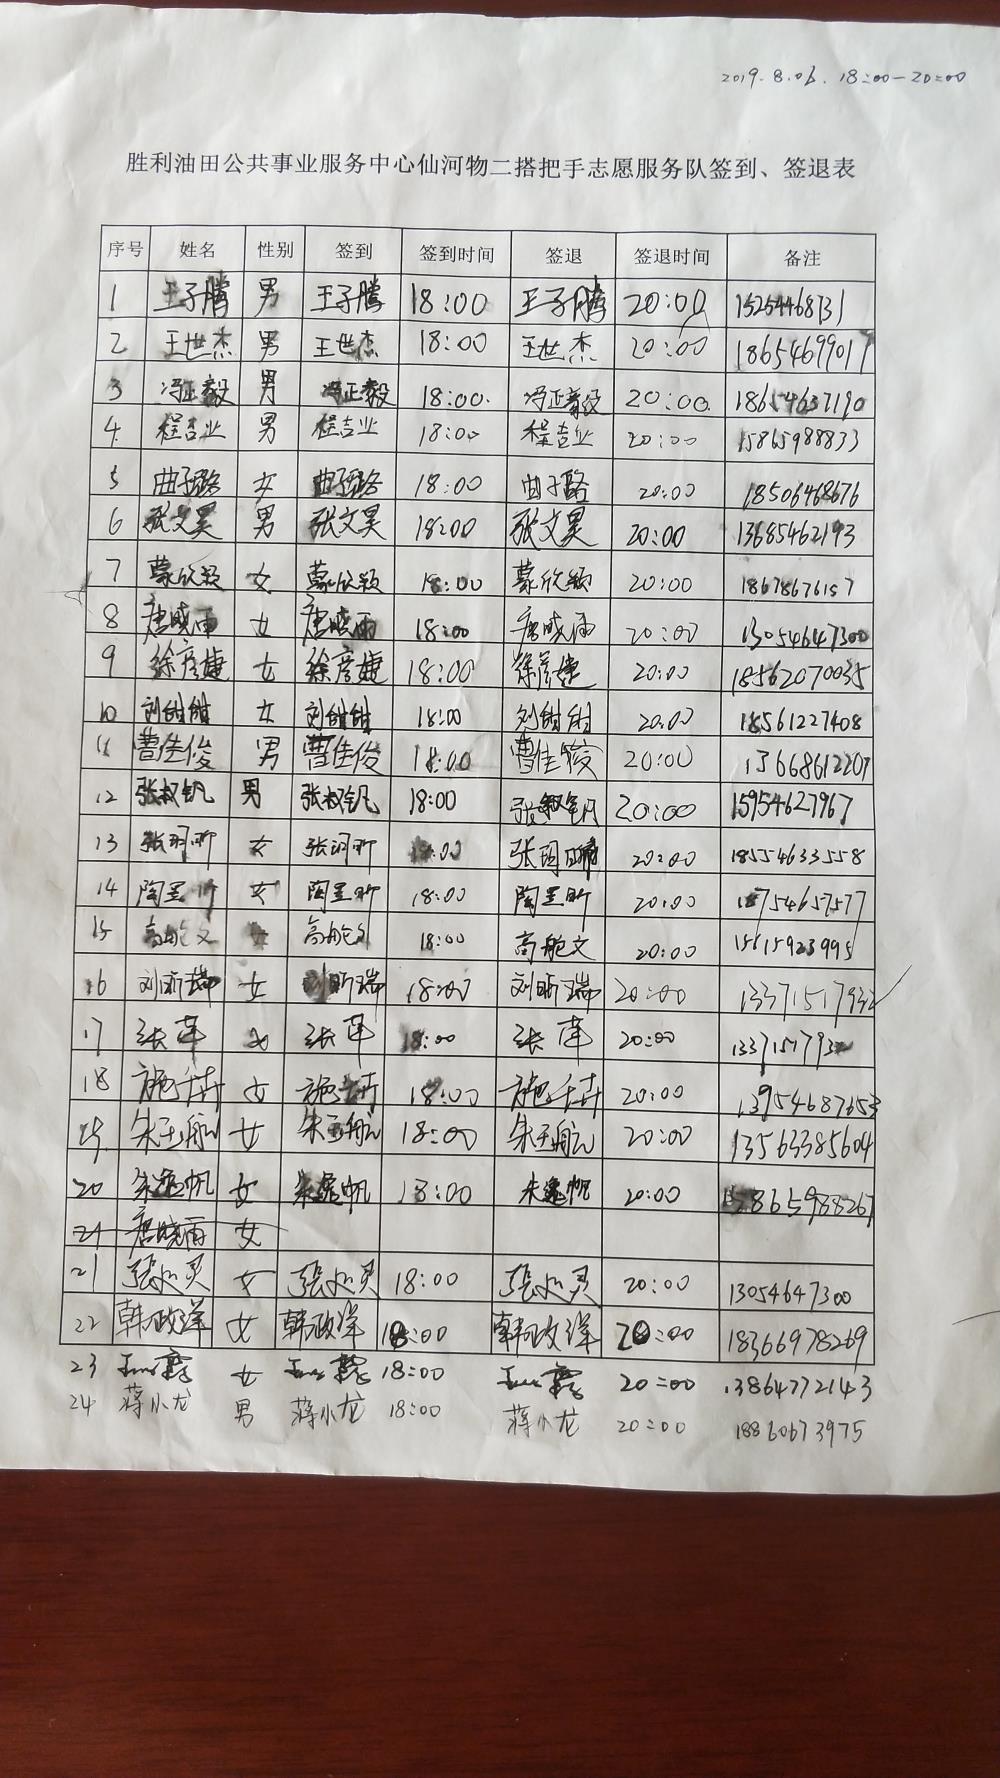 2019.8.06. 18:00-20:00
胜利油田公共事业服务中心仙河物二搭把手志愿服务队签到、签退表
序号 姓名 性别 签到 签到时间 签退 签退时间 备注
1 王子腾 男 王子腾 18:00 王子腾 20:00 15254468731
2 王世杰 男 王世杰 18:00 王世杰 20:00 18654699017
3 冯正毅 男 冯正毅 18:00. 冯正毅 20:00. 18654637190
4. 程吉业 男 程吉业 18:00 程吉业 20:00 15865988833
5 曲子璐 女 曲子璐 18:00 曲子璐 20:00 18506468676
6 张文昊 男 张文昊 18:00 张文昊 20:00 13685462193
7 蒙欣颖 女 蒙欣颖 18:00 蒙欣颖 20:00 18678676157
8 唐晓雨 女 唐晓雨 18:00 唐晓雨 20:00 13054647300
9 徐彦婕 女 徐彦婕 18:00 徐彦婕 20:00 18562070035
10 刘 女 刘 18:00 刘 20:00 18561227408
11 曹佳俊 男 曹佳俊 18:00 曹佳俊 20:00 13668612207
12 张叔钒 男 张叔钒 18:00 张叔钒 20:00 15954627967
13 张玥昕 女 张玥昕 18:00 张玥 20:00 18554633558
14 陶昱昕 女 陶昱昕 18:00 陶昱昕 20:00 18754657577
15 高舱文 女 高舱文 18:00 高舱文 20:00 15615923995
16 刘昕瑞 女 刘昕瑞 18:00 刘昕瑞 20:00 13371517932
17 张苹 女 张苹 18:00 张苹 20:00 13371517932
18 施千卉 女 施千卉 18:00 施千卉 20:00 13954687653
19. 朱玉航 女 朱玉航 18:00 朱玉航 20:00 13563385604
20 朱逸帆 女 朱逸帆 18:00 朱逸帆 20:00 15865988267
21 唐晓雨 女
21 张灵 女 张灵 18:00 张灵 20:00 13054647300
22 韩政洋 女 韩政洋 18:00 韩政洋 20:00 18366978269
23 女 18:00 20:00 13864772143
24 蒋小龙 男 蒋小龙 18:00 蒋小龙 20:00 18860673975